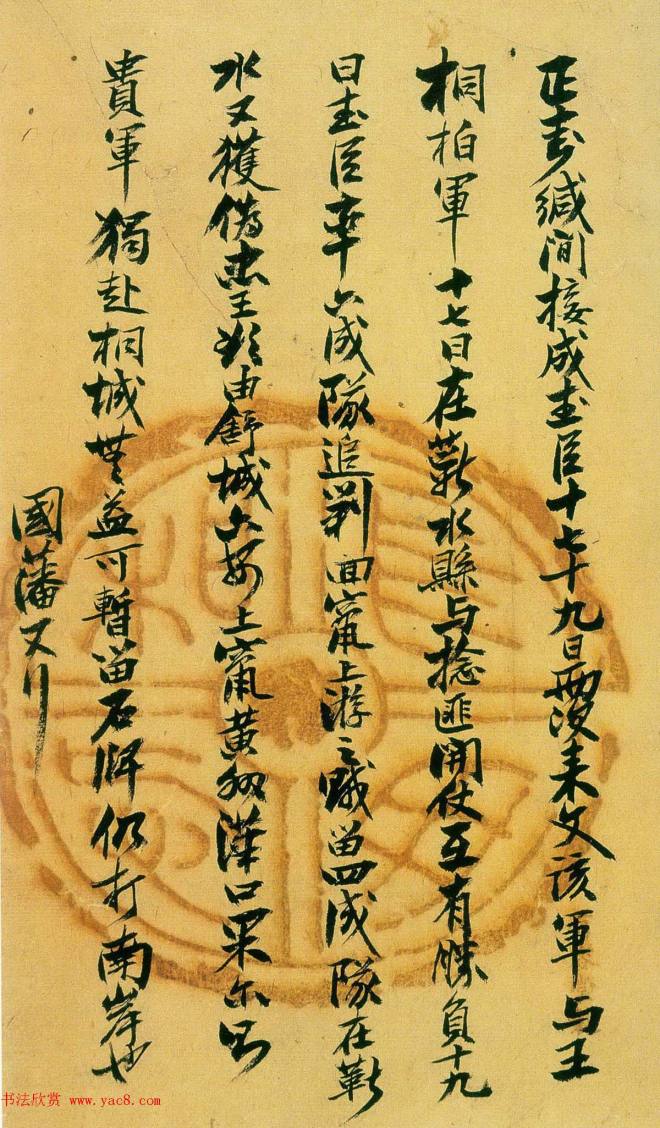 正封緘間接成武臣十七十九日兩次来文该軍与王
桐柏軍十七日在蘄水縣与捻匪開仗互有勝負十九
日武臣率六成隊追剿回竄上游之賊留四成隊在蘄
水又獲偽忠王欲由舒城六安上竄黄州漢口果尔則
貴軍獨赴桐城無益可暫留石牌仍打南岸也
國藩又行
书法欣赏 www.yac8.com